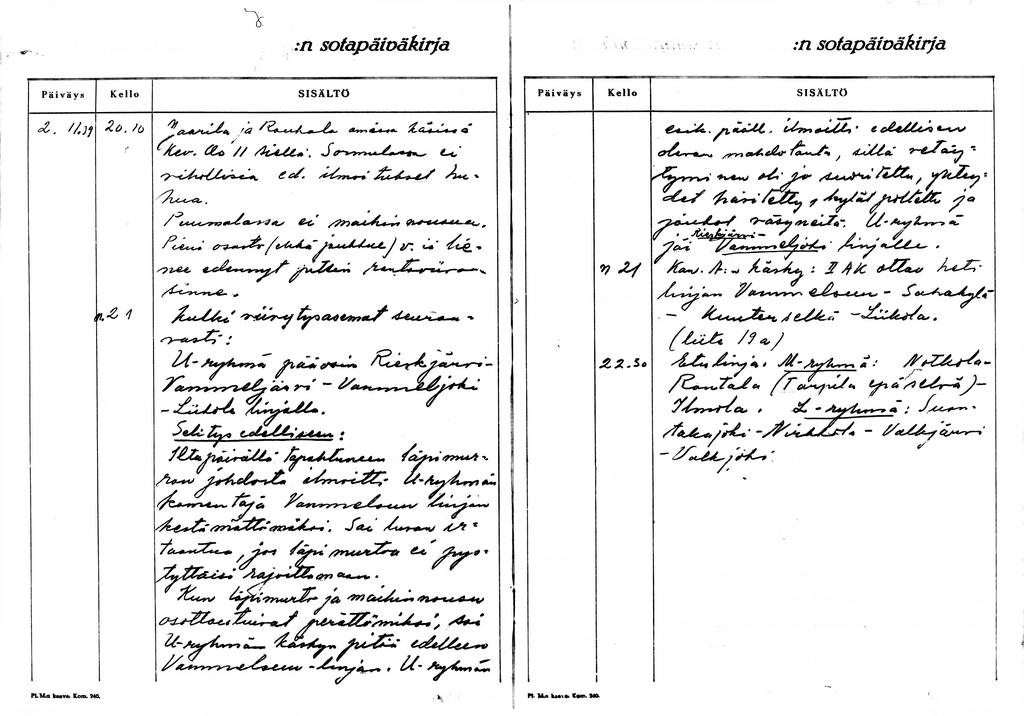 :n sotapäiväkirja
Päiväys Kello SISÄLTÖ
2. 11/39 20.10 Vaarila ja Rauhala omissa käsissä
Kev. Os 11 siellä. Sormulassa ei
vihollisia ed. ilmoitukset hu-
hua.
Puumalassa ei maihinnousua.
Pieni osasto (ehkä joukkue) v. is lie-
nee edennyt jutkin rantaviivaa-
sinne.
n. 21 Kulki siirtytysasemat seuraa-
vasti:
U-ryhmä pääosin Rieskjärvi-
Vammeljärvi - Vammeljoki
- Liikola linjalla.
Selitys edelliseen:
Iltapäivällä tapahtuneen läpimur-
ron johdosta ilmoitti U-ryhmän
komentaja Vammelsuun linjan
kestämättömäksi. Sai luvan ir-
taantua, jos läpimurtoa ei pys-
tyttäisi rajoittamaan.
Kun läpimurto ja maihinnousu
osottautuivat perättömiksi, sai
U-ryhmän käskyn pitää edelleen
Vammelsuun-linjan. U-ryhmän
Pl. M:n kaava. Kom. 240.
:n sotapäiväkirja
Päiväys Kello SISÄLTÖ
esik. pääll. ilmoitti edellisen
olevan mahdotonta, sillä vetäy-
tyminen oli jo suoritettu, yhtey-
det hävitetty, kylät poltettu ja
joukot väsyneitä. U-ryhmä
Rieskjärvi-
jäi Vammeljoki linjalle.
n 21 Kan. A:n käsky: II AK ottaa heti
linjan Vammelsuun - Sahakylä
- Kuuterselkä - Liikola.
(liite 19a)
22.50 Etulinja. M-ryhmä: Notkola-
Rantala (Tarpila epäselvä)-
Ilmola. L-ryhmä: Suon-
takajoki - Nirkkola - Valkjärvi
- Valkjoki.
Pl. M:n kaava. Kom. 240.